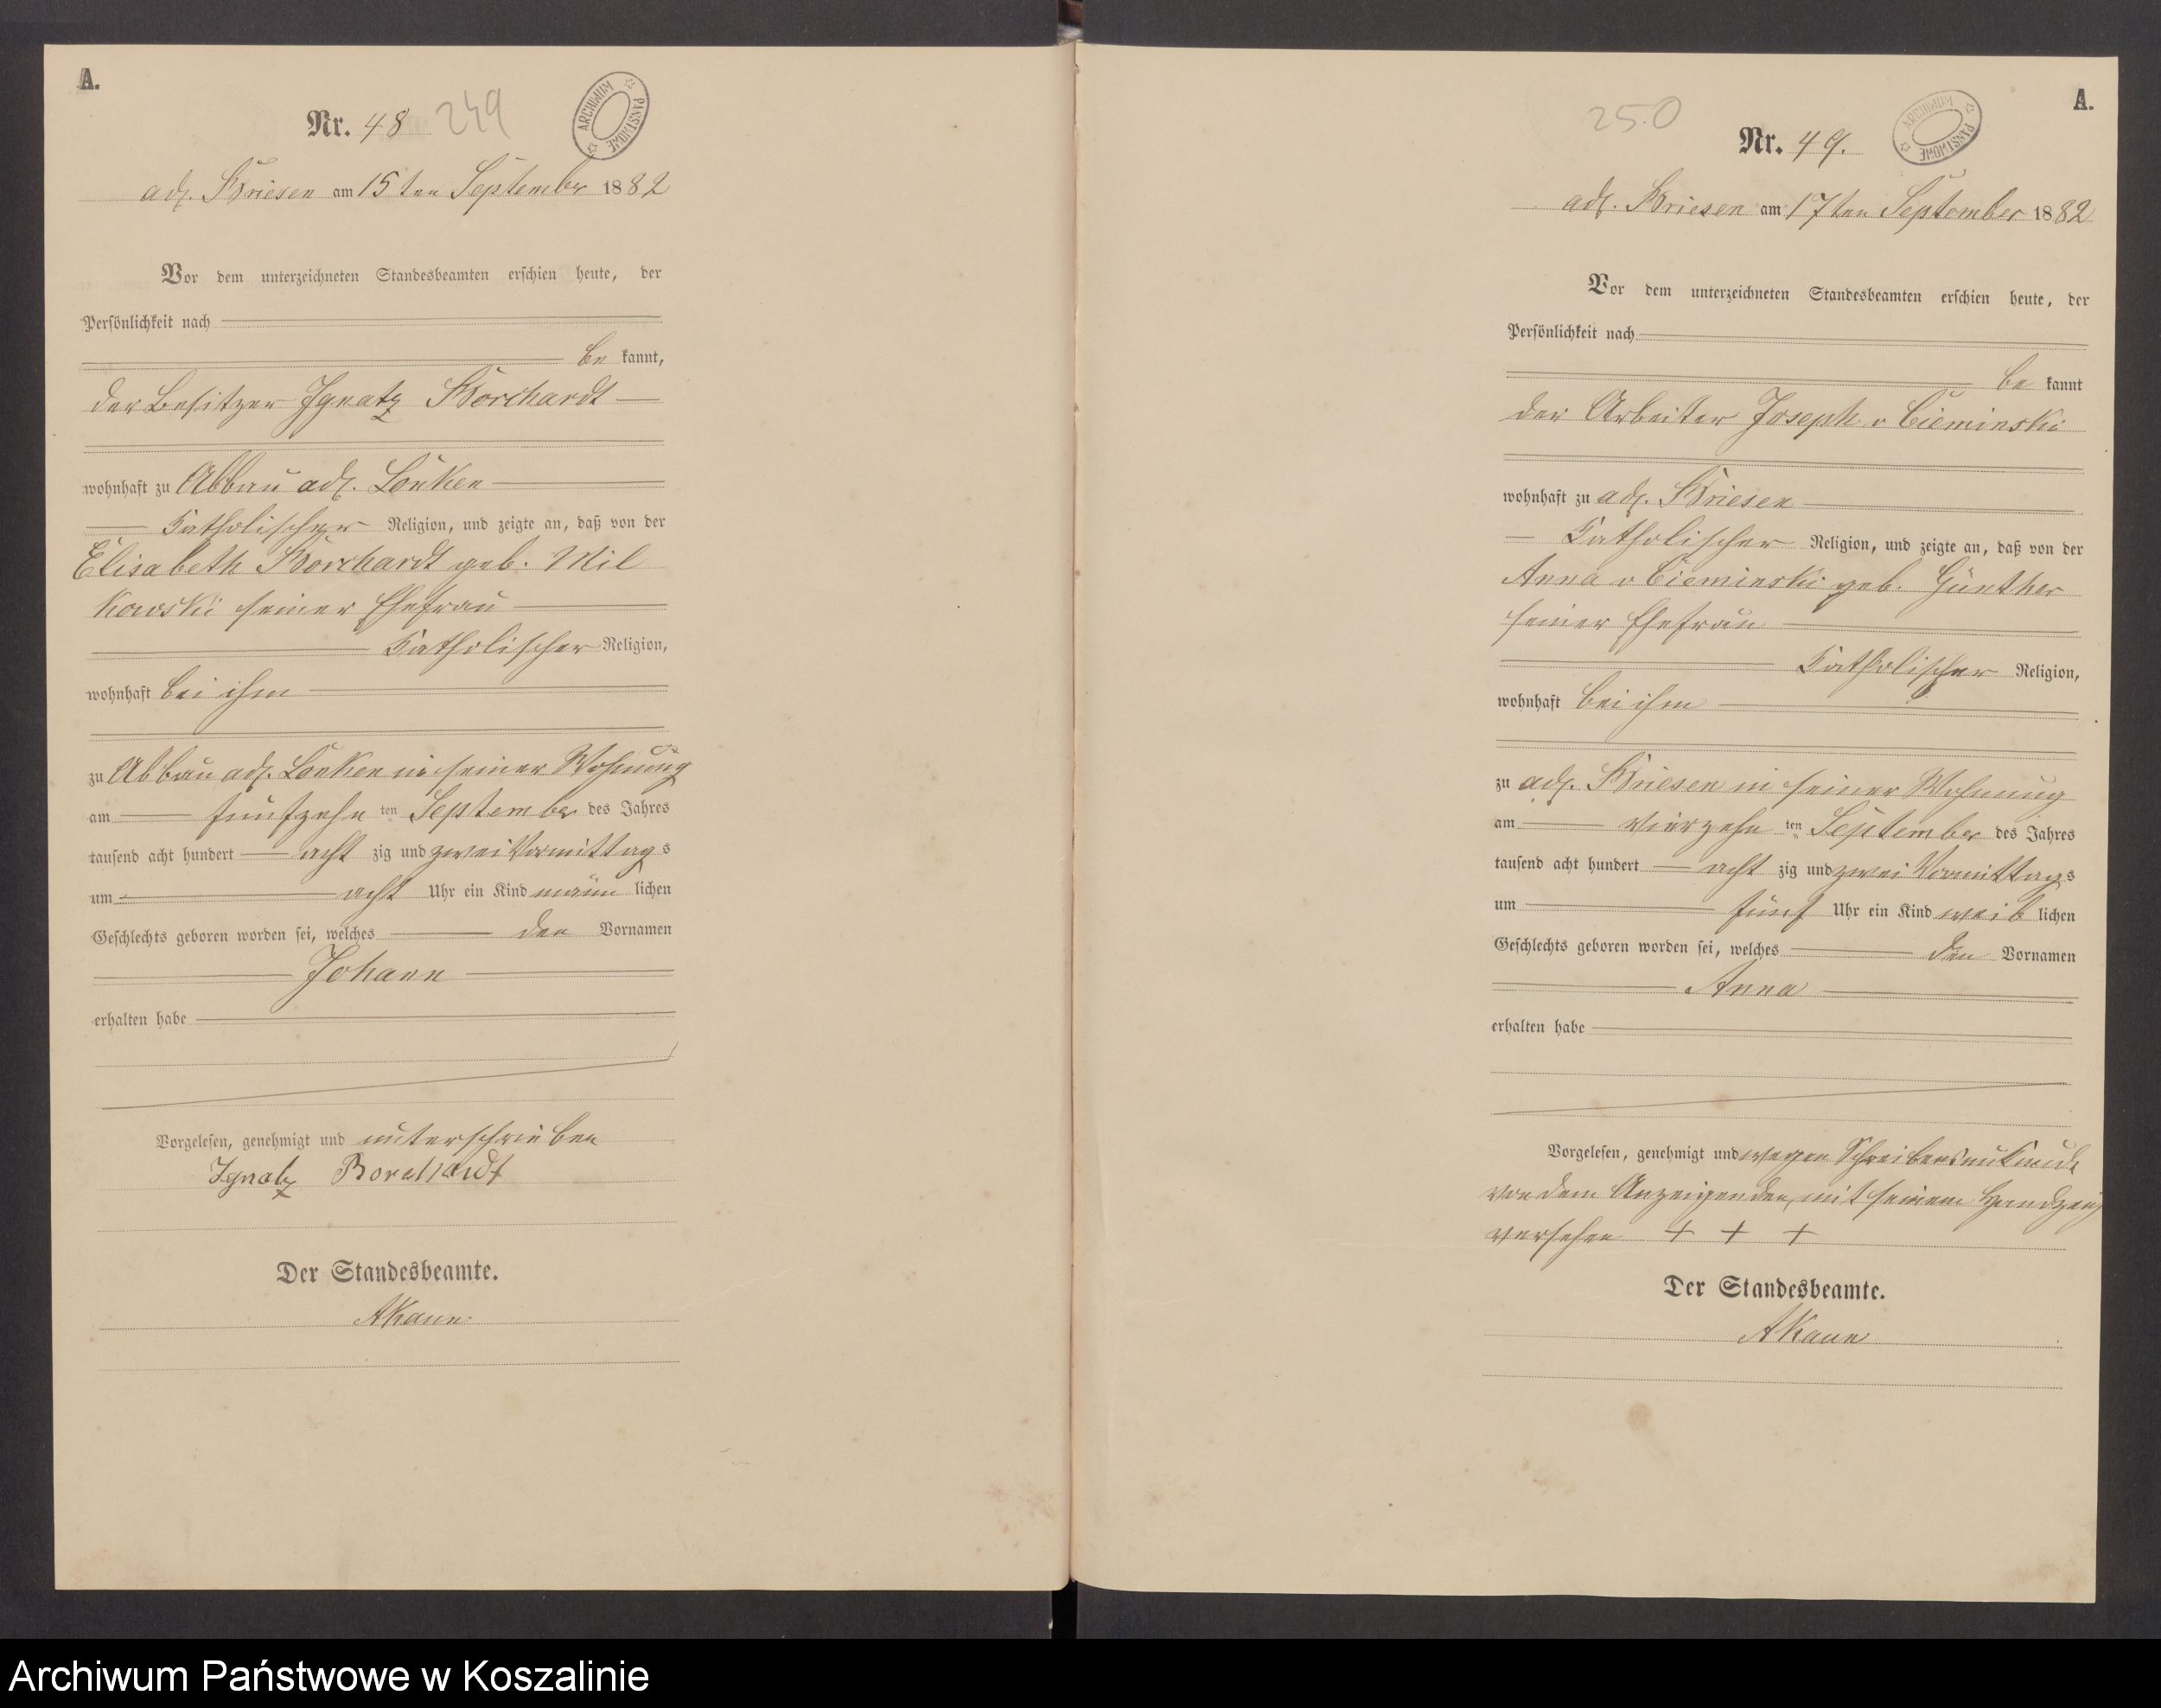 A.
Nr. 48 249
ARCHIWUM PAŃSTWOWE
adl. Briesen am 15ten September 1882
Vor dem unterzeichneten Standesbeamten erschien heute, der
Persönlichkeit nach
be kannt,
der Besitzer Ignatz Borchardt
wohnhaft zu Abbau adl. Lonken
Katholischer Religion, und zeigte an, daß von der
Elisabeth Borchardt geb. Mil
kowski seiner Ehefrau
Katholischer Religion,
wohnhaft bei ihm
zu Abbau adl. Lonken in seiner Wohnung
am fünfzehn ten September des Jahres
tausend acht hundert acht zig und zwei Vormittags
um acht Uhr ein Kind männ lichen
Geschlechts geboren worden sei, welches den Vornamen
Johann
erhalten habe
Vorgelesen, genehmigt und unterschrieben
Ignatz Borchardt
Der Standesbeamte.
AKaun
A.
250
Nr. 49.
ARCHIWUM PAŃSTWOWE
adl. Briesen am 17ten September 1882
Vor dem unterzeichneten Standesbeamten erschien heute, der
Persönlichkeit nach
be kannt
der Arbeiter Joseph v Cieminski
wohnhaft zu adl. Briesen
Katholischer Religion, und zeigte an, daß von der
Anna v Cieminski geb. Günther
seiner Ehefrau
Katholischer Religion,
wohnhaft bei ihm
zu adl. Briesen in seiner Wohnung
am vierzehn ten September des Jahres
tausend acht hundert acht zig und zwei Vormittags
um fünf Uhr ein Kind weib lichen
Geschlechts geboren worden sei, welches den Vornamen
Anna
erhalten habe
Vorgelesen, genehmigt und wegen Schreibensunkunde
von dem Anzeigenden, mit seinem Handzeig
versehen + + +
Der Standesbeamte.
AKaun
Archiwum Państwowe w Koszalinie